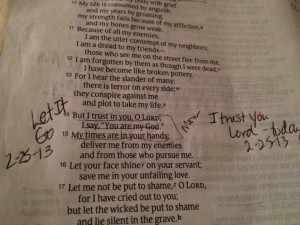 body with grief.
10 My life is consumed by anguish
and my years by groaning;
my strength fails because of my affliction,
and my bones grow weak.
11 Because of all my enemies,
I am the utter contempt of my neighbors;
I am a dread to my friends—
those who see me on the street flee from me.
12 I am forgotten by them as though I were dead;
I have become like broken pottery.
13 For I hear the slander of many;
there is terror on every side;
they conspire against me
and plot to take my life.
14 But I trust in you, O LORD;
I say, "You are my God."
15 My times are in your hands;
deliver me from my enemies
and from those who pursue me.
16 Let your face shine on your servant;
save me in your unfailing love.
17 Let me not be put to shame, O LORD,
for I have cried out to you;
but let the wicked be put to shame
and lie silent in the grave.
Let It
Go
2-25-13
I trust You
Lord - today
2-25-13